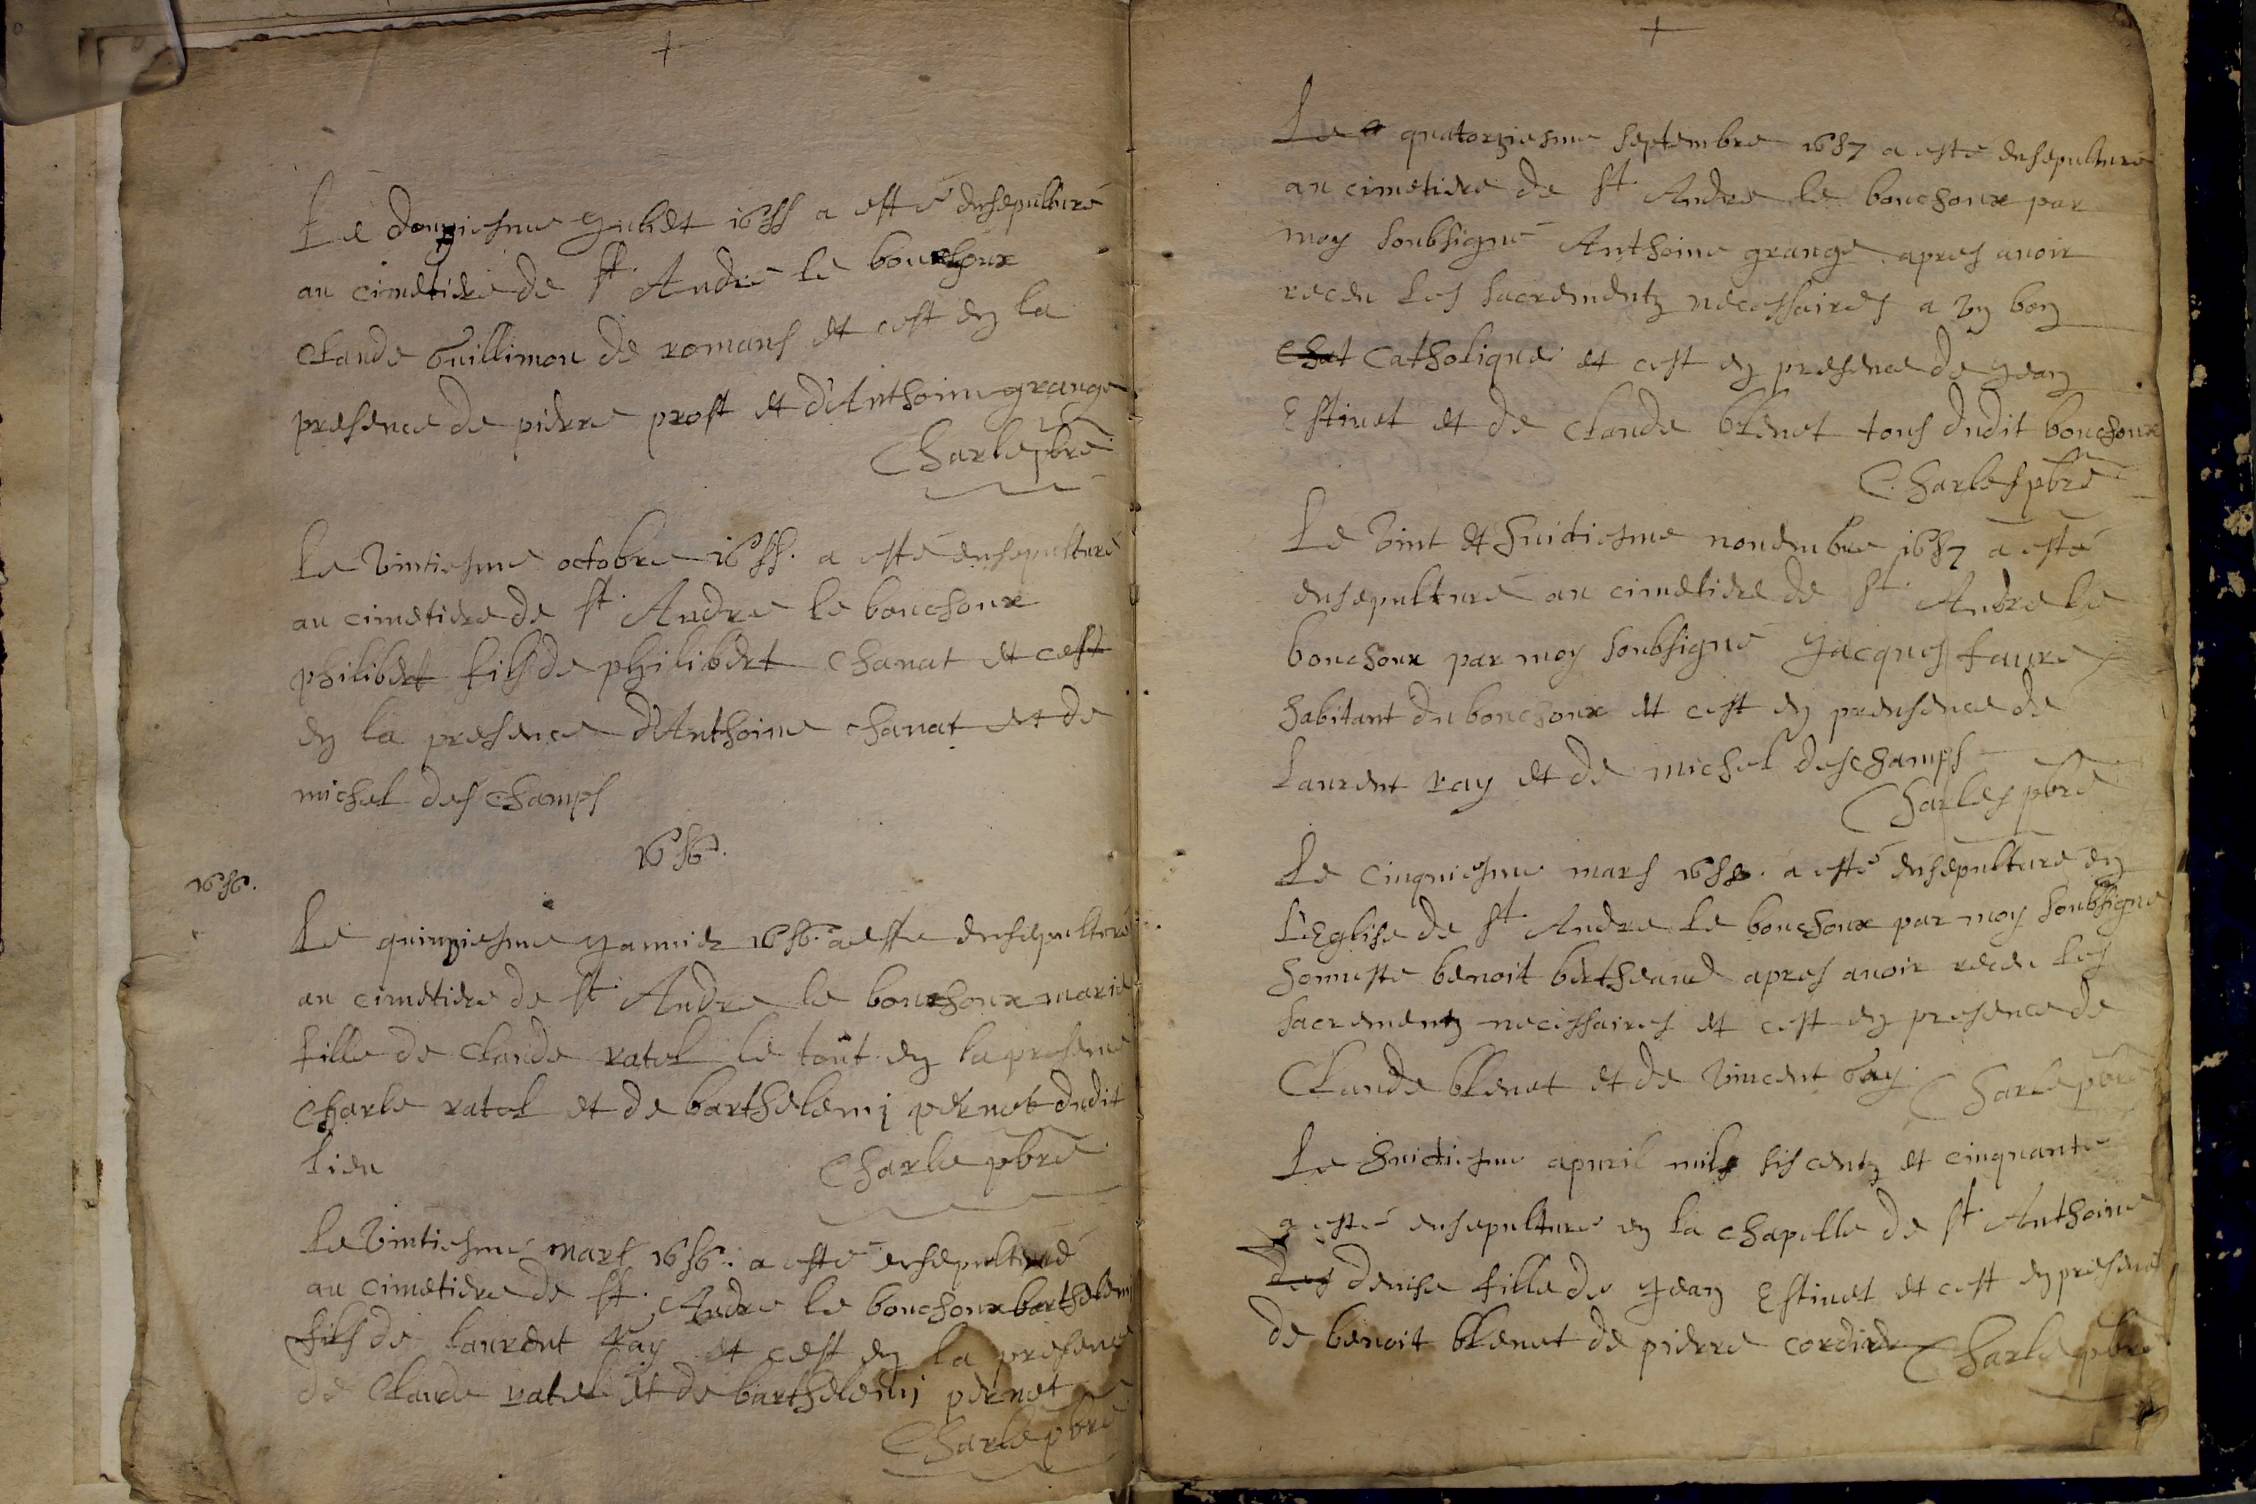 Le douziesme Jullet 1655 a esté ensepulturé
au cimetiere de st. Andre le bouchoux
Claude Guillimon de romans et cest en la
presence de pierre prost et d'Anthoine grange
Charle pbre
Le vintiesme octobre 1655. a esté ensepulturé
au cimetiere de st. Andre le bouchoux
philibert fils de philibert chanat et cest
en la presence d'Anthoine chanat et de
michel des champs
1656.
1656.
Le quinziesme yanuier 1656. a esté ensepulturé
au cimetiere de st. Andre le bouchoux marie
fille de Claude ratel le tout en la presence
Charle ratel et de barthelemi pernet dudit
lieu
Charle pbre
Le vintiesme mars 1656. a esté ensepulturé
au cimetiere de st. Andre le bouchoux barthelemi
fils de laurent ray et cest en la presence
de Claude ratel et de barthelemi pernet
Charle pbre
Le quatorziesme septembre 1657 a esté ensepulturé
au cimetiere de st. Andre le bouchoux par
moy soubsigné Anthoine grange apres auoir
receu les sacrementz necessaires a un bon
Catholique et cest en presence de yean
Estiuet et de Claude blenet tous dudit bouchoux
Charles pbre
Le vint et huictiesme nouembre 1657 a esté
ensepulturé au cimetiere de st. Andre le
bouchoux par moy soubsigné yacques faure
habitant du bouchoux et cest en prensence de
laurent ray et de michel deschamps
Charles pbre
Le cinquiesme mars 1658. a esté ensepulturé en
l'Eglise de st. Andre le bouchoux par moy soubsigné
honneste benoit bertheaud apres auoir receu les
sacrementz necissaires et cest en presence de
Claude blenet et de vincent Gay. Charle pbre
Le huictiesme apuril mil sis centz et cinquante
a esté ensepulturé en la chapelle de st. Anthoine
denise fille de yean Estiuet et cest en presence
de benoit blenet de pierre cordier Charle pbre